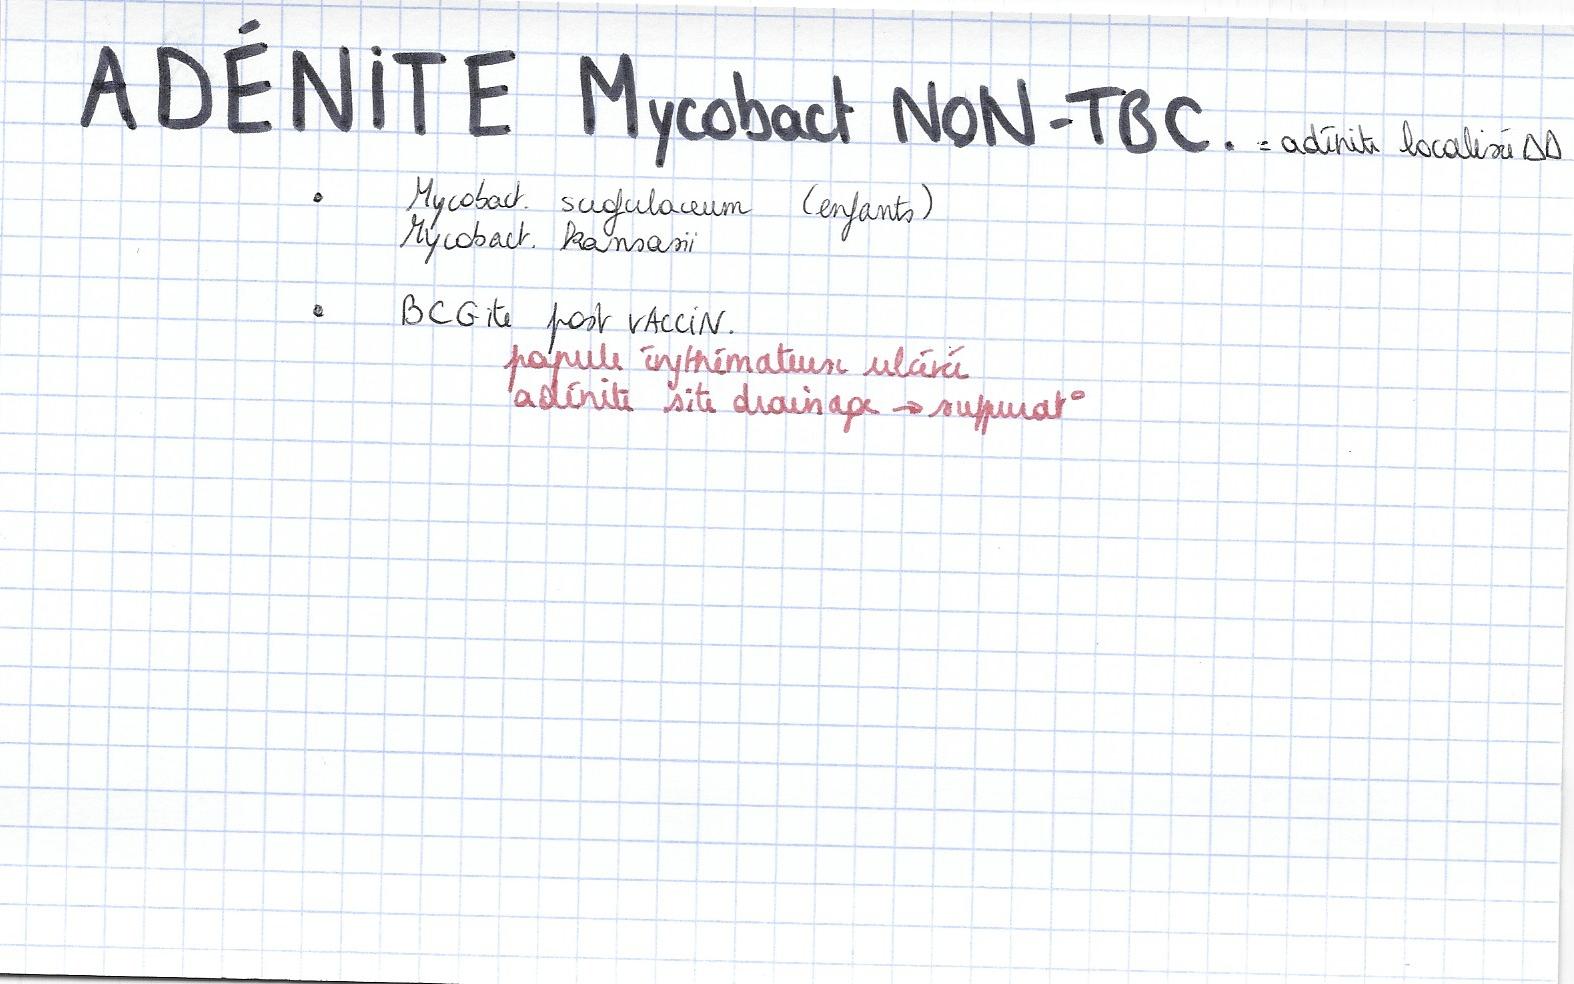 ADÉNiTE Mycobact NON-TBC. = adénite localisée ΔΔ
• Mycobact. sugulaceum (enfants)
Mycobact. kansasii
• BCGite post VACCiN.
papule érythémateuse ulcéré
adénite site drainage → suppurat°